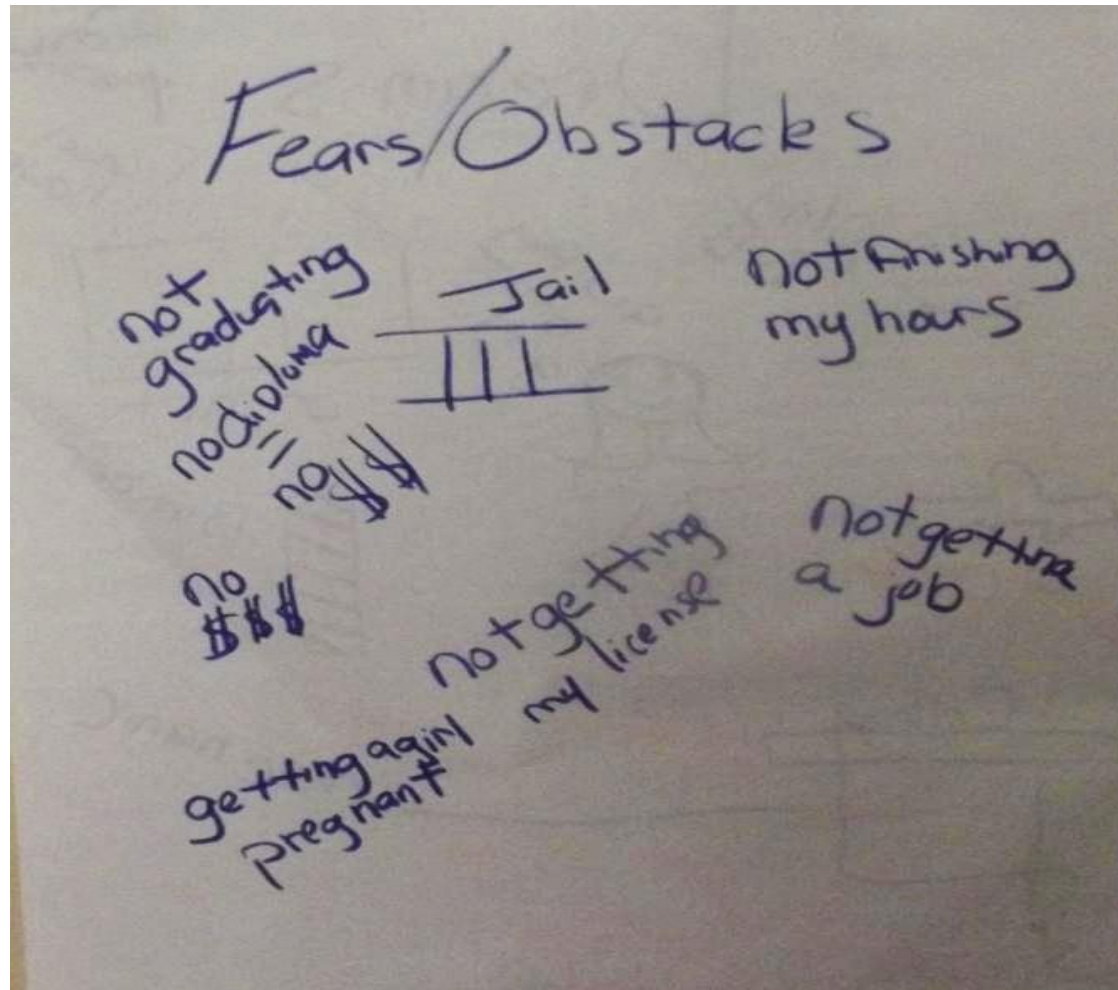 Fears/Obstacks
not
graduating
no diploma
=
no $$
Jail
not finishing
my hours
no
$$$
not getting
my license
not getting
a job
getting a girl
pregnant